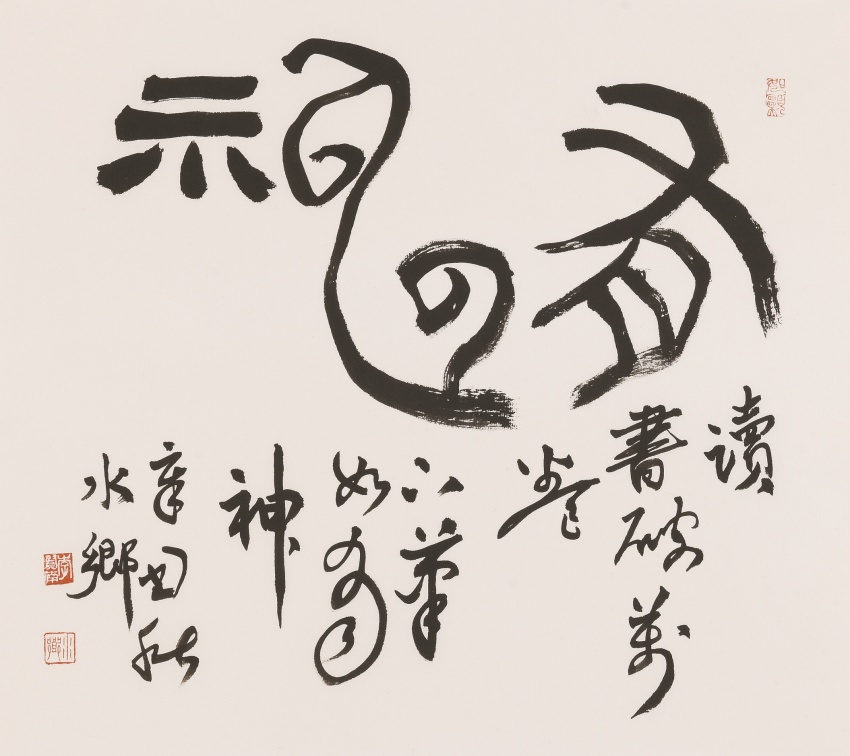 有神
讀
書破萬
卷
下筆
如有
神
辛丑秋
水鄉